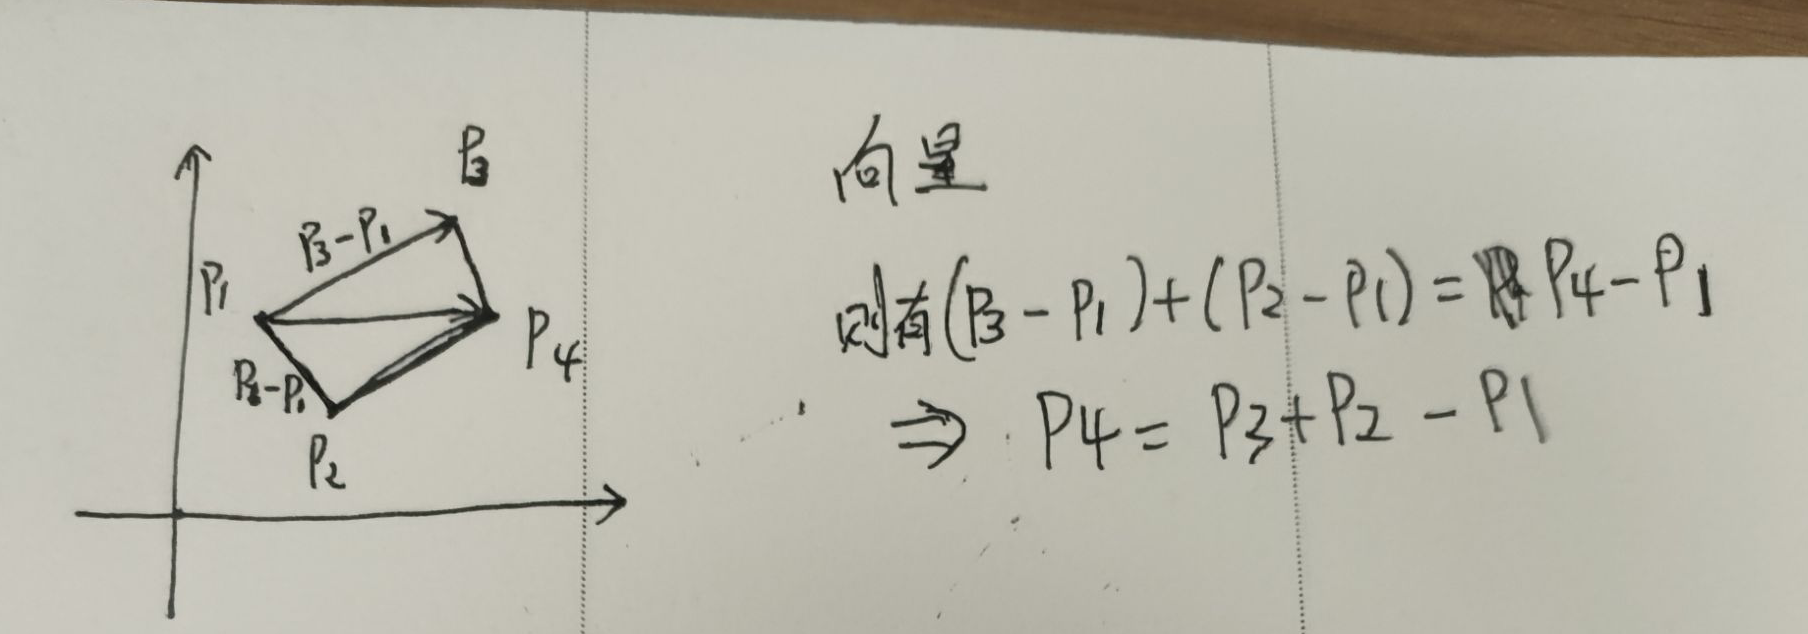 P3
P3-P1
P1
P4
P2-P1
P2
向量
则有(P3-P1)+(P2-P1)=P4-P1
⇒ P4=P3+P2-P1